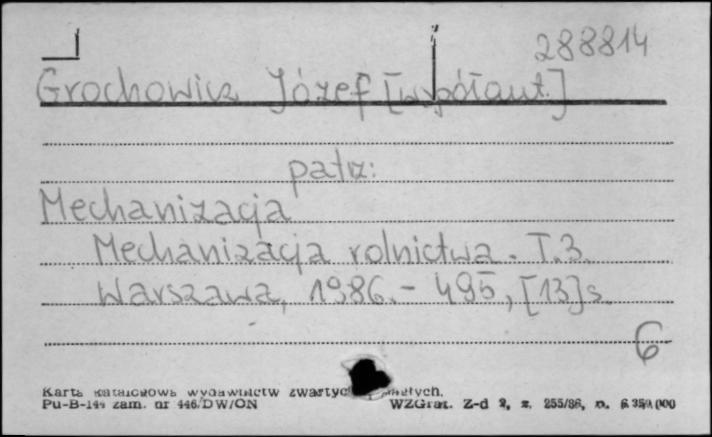 288814
Grochowicz Józef [współaut.]
patrz:
Mechanizacja
Mechanizacja rolnictwa. T.3.
Warszawa, 1986.- 495, [13]s.
6
Karta katalogowa wydawnictw zwartych
Pu-B-144 zam. nr 446/DW/ON WZGraf. Z-d 2, z. 255/86, n.